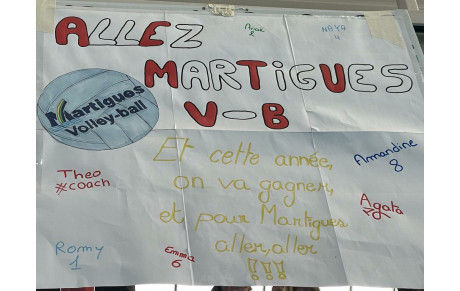 ALLEZ
MARTIGUES
V-B
Martigues
Volley-ball
Et cette année,
on va gagner,
et pour Martigues
aller, aller
!!!
Theo
#COACH
Romy
1
Emma
6
Amandine
8
Agata